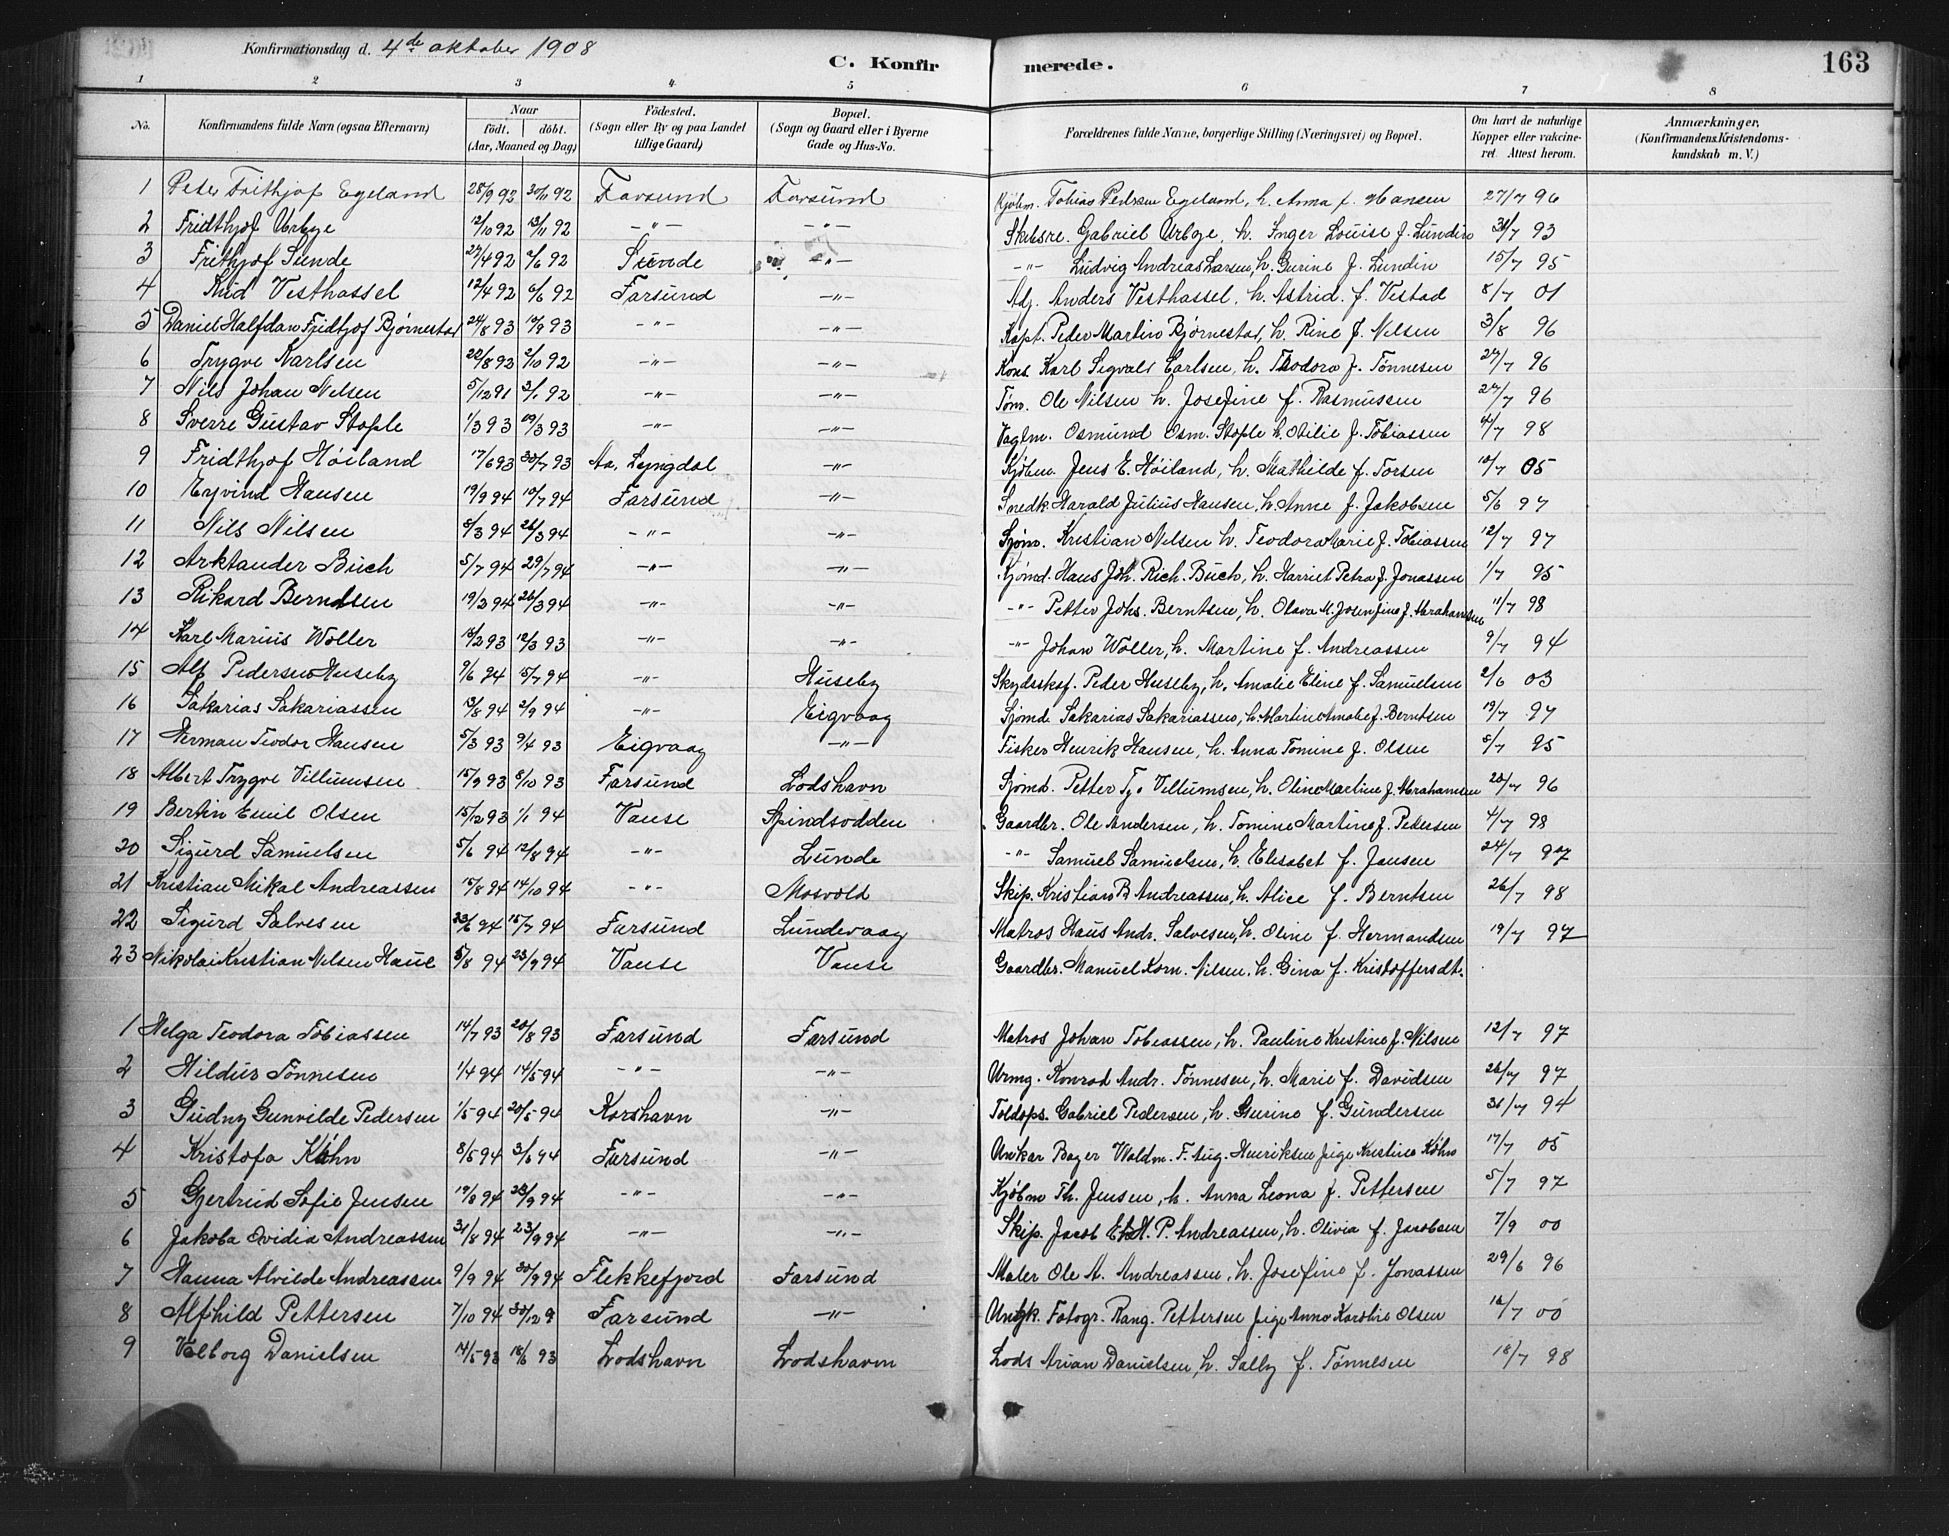 Konfirmationsdag d. 4de oktober 1908
C. Konfir merede. 163
1 2 3 4 5 6 7 8
No. Konfirmandens fulde Navn (ogsaa Efternavn) Naar født. døbt. (Aar, Maaned og Dag) Födested. (Sogn eller By og paa Landet tillige Gaard) Bopæl. (Sogn og Gaard eller i Byerne Gade og Hus-No. Forældrenes fulde Navne, borgerlige Stilling (Næringsvei) og Bopæl. Om havt de naturlige Kopper eller vakcineret. Attest herom. Anmærkninger, (Konfirmandens Kristendomskundskab m. V.)
1 Peter Frithjof Egeland 28/9 92 20/11 92 Farsund Farsund Kjøbm. Tobias Pedersen Egeland, h. Anna f. Hansen 27/7 96
2 Fridthjof Urbye 12/10 92 13/11 92 -"- -"- Skibsre. Gabriel Urbye, h. Inger Louise f. Lundin 31/7 93
3 Frithjof Sunde 27/4 92 2/6 92 Sunde -"- -"- Ludvig Andreas Larsen, h. Gurine f. Lundin 15/7 95
4 Knud Vesthassel 12/4 92 6/6 92 Farsund -"- Adj. Anders Vesthassel, h. Astrid f. Vestad 8/7 01
5 Daniel Halfdan Fridtjof Bjørnestad 24/8 93 10/9 93 -"- -"- Kapt. Peder Martin Bjørnestad, h. Rine f. Nilsen 3/8 96
6 Trygve Karlsen 22/8 92 2/10 92 -"- -"- Kons. Karl Sigvald Carlsen, h. Teodora f. Tønnesen 27/7 96
7 Nils Johan Nilsen 5/12 91 3/1 92 -"- -"- Tøm. Ole Nilsen h. Josefine f. Rasmussen 27/7 96
8 Sverre Gustav Stople 1/3 93 19/3 93 -"- -"- Vagtm. Osmund Osm. Stople h. Otilie f. Tobiassen 4/7 98
9 Fridthjof Høiland 17/6 93 30/7 93 Aa, Lyngdal -"- Kjøbm. Jens E. Høiland, h. Mathilde f. Torsen 10/7 05
10 Eyvind Hansen 19/9 94 10/7 94 Farsund -"- Snedk. Harald Julius Hansen, h. Anne f. Jakobsen 5/6 97
11 Nils Nilsen 8/3 94 26/3 94 -"- -"- Sjøm. Kristian Nilsen h. Teodora Marie f. Tobiassen 12/7 97
12 Arktander Buch 5/7 94 29/7 94 -"- -"- Sjømd. Hans Joh. Rich. Buch, h. Harriet Petra f. Jonassen 1/7 95
13 Rikard Berndsen 19/2 94 26/3 94 -"- -"- -"- Petter Johs. Berntsen, h. Olava M. Josefine f. Abrahamsen 11/7 98
14 Karl Marius Woller 18/2 93 12/3 93 -"- -"- -"- Johan Woller, h. Martine f. Andreassen 9/7 94
15 Alf Pedersen Huseby 9/6 94 15/7 94 -"- Huseby Skydsskf. Peder Huseby, h. Amalie Eline f. Samuelsen 2/6 03
16 Sakarias Sakariassen 13/8 94 2/9 94 -"- Eigvaag Sjømd. Sakarias Sakariassen, h. Martine Amalie f. Berntsen 19/7 97
17 Herman Teodor Hansen 5/3 93 9/4 93 Eigvaag -"- Fisker Henrik Hansen, h. Anna Tomine f. Olsen 5/7 95
18 Albert Trygve Villumsen 15/9 93 8/10 93 Farsund Lodshavn Sjømd. Petter Ty. Villumsen, h. Oline Martine f. Abrahamsen 20/7 96
19 Bertin Emil Olsen 15/12 93 1/1 94 Vanse Spindsodden Gaardbr. Ole Andersen, h. Tomine Martine f. Pedersen 4/7 98
20 Sigurd Samuelsen 5/6 94 12/8 94 -"- Lunde -"- Samuel Samuelsen, h. Elisabet f. Jansen 24/7 97
21 Kristian Mikal Andreassen 15/8 94 14/10 94 -"- Mosvold Skip. Kristian B. Andreassen, h. Alice f. Berntsen 26/7 98
22 Sigurd Salvesen 23/6 94 15/7 94 Farsund Lundevaag Matros Hans Andr. Salvesen, h. Oline f. Hermandsen 19/7 97
23 Nikolai Kristian Nilsen Haue 5/8 94 23/9 94 Vanse Vanse Gaardbr. Manuel Korn. Nilsen, h. Gina f. Kristoffersdt.
1 Helga Teodora Tobiassen 14/7 93 20/8 93 Farsund Farsund Matros Johan Tobiassen, h. Pauline Kristine f. Nilsen 12/7 97
2 Hildur Tønnesen 1/4 94 14/5 94 -"- -"- Urmg. Konrad Andr. Tønnesen, h. Marie f. Davidsen 26/7 97
3 Gudny Gunvilde Pedersen 1/5 94 20/5 94 Korshavn -"- Toldops. Gabriel Pedersen, h. Gurine f. Gundersen 31/7 94
4 Kristofa Køhn 8/5 94 3/6 94 Farsund -"- Unkar Bager Waldm. F. Aug. Henriksen Pige Kristine Køhn 17/7 05
5 Gjertrud Sofie Jensen 19/8 94 23/9 94 -"- -"- Kjøbm Th. Jensen, h. Anna Leona f. Pettersen 5/7 97
6 Jakoba Ovidia Andreassen 31/8 94 23/9 94 -"- -"- Skip. Jacob E. A. P. Andreassen, h. Olivia f. Jacobsen 7/9 00
7 Hanna Alvilde Andreassen 9/9 94 30/9 94 Flekkefjord Farsund Maler Ole A. Andreassen, h. Josefine f. Jonassen 29/6 96
8 Alfhild Pettersen 7/10 94 30/12 9 Farsund -"- Ungk. Fotogr. Rang. Pettersen Pige Anna Karoline Olsen 16/7 00
9 Valborg Danielsen 14/5 93 18/6 93 Lodshavn Lodshavn Lods Arian Danielsen, h. Sally f. Tønnesen 18/7 98